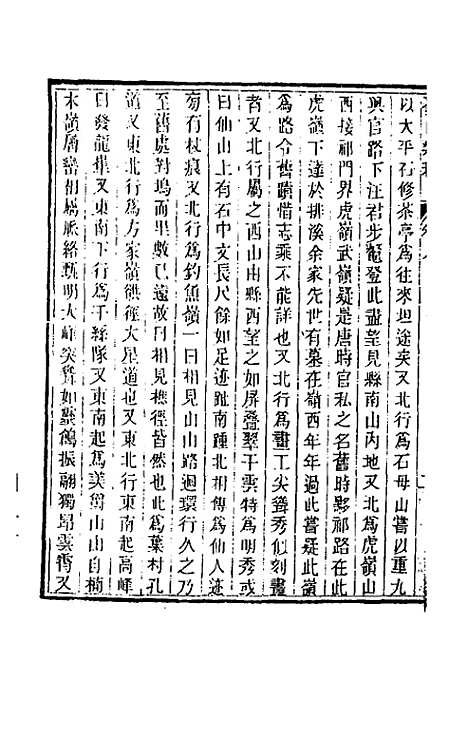 以大平石修茶亭爲往來坦途矣又北行爲石母山嘗以重九
與官路下汪君步鼇登此盡望見縣南山內地又北爲虎嶺山
西接祁門界虎嶺武嶺疑是唐時官私之名舊時黟祁路在此
虎嶺下達於排溪余家先世有墓在嶺西年年過此嘗疑此嶺
爲路令舊蹟惜志乘不能詳也又北行爲畫工尖聳秀似刻畫
者又北行屬之西山由縣西望之如屏疊翠干雲特爲明秀或
曰仙山上有石中文長尺餘如足迹趾南踵北相傳爲仙人迹
旁有杖痕又北行爲釣魚嶺一曰相見山山路迴環行久之乃
至舊處對塢而里數已遠故曰相見樵徑皆然也此爲葉村孔
道又東北行爲方家嶺樵徑大星道也又東北行東南起高峰
曰發龍堆又東南下行爲千絲隊又東南起爲美鬚山山自楠
木嶺層巒相屬脈絡甄明大峰突聳如鷙鶴振翮獨昻雲霄又